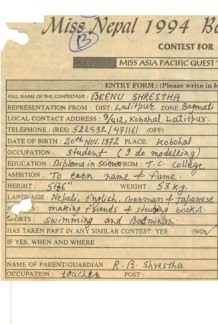 Miss Nepal 1994
B
CONTEST FOR
MISS ASIA PACIFIC QUEST
ENTRY FORM: (Please write in
FULL NAME OF THE CONTESTANT: BEENU SHRESTHA
REPRESENTATION FROM : DIST: Lalitpur ZONE: Bagmati
LOCAL CONTACT ADDRESS: 9/412, Kobahal, Lalitpur.
TELEPHONE : (RES) 522532/471161 (OFF)
DATE OF BIRTH 20th Nov. 1972 PLACE: Kobahal
OCCUPATION : Student (I do modelling)
EDUCATION : Diploma in Science FROM: T.C. College
AMBITION : To earn name & fame.
HEIGHT : 5' 6" WEIGHT : 53 kg.
LANGUAGE Nepali, English, German & Japanese
making friends & studying books
SPORTS : Swimming and Badminton
HAS TAKEN PART IN ANY SIMILAR CONTEST: YES /NO
IF YES, WHEN AND WHERE
NAME OF PARENT/GUARDIAN R.B. Shrestha
OCCUPATION : teacher POST :